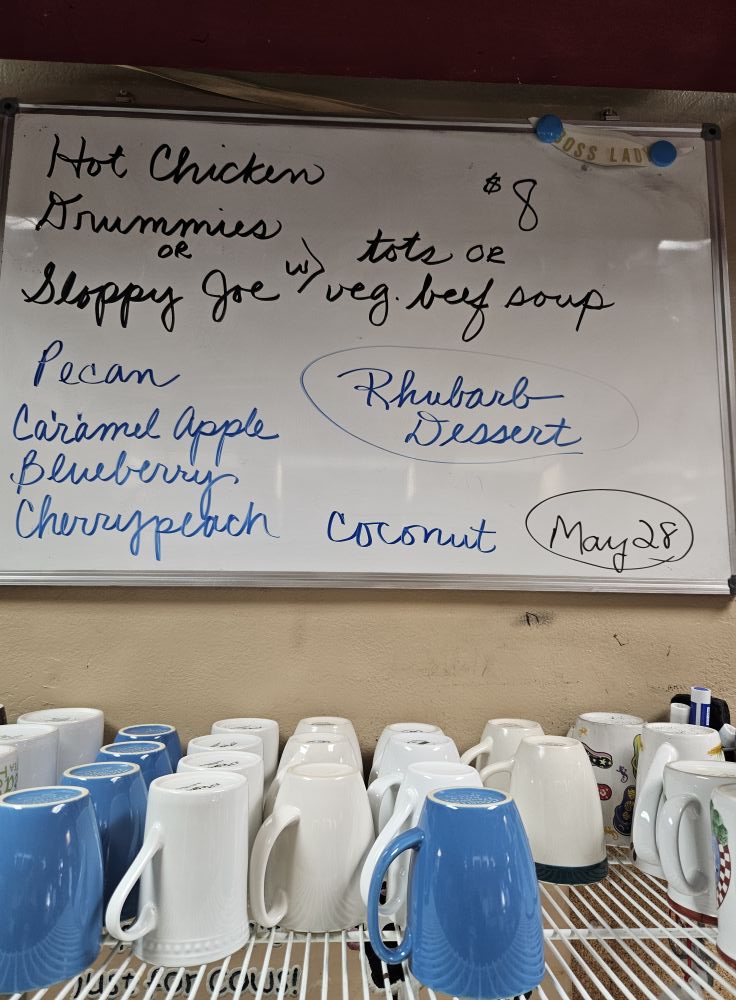 BOSS LADY
Hot Chicken $8
Drummies
OR
Sloppy Joe w/ tots OR
veg. beef soup
Pecan
Caramel Apple
Blueberry
Cherrypeach
Rhubarb
Dessert
Coconut
May 28
JUST FOR COWS!